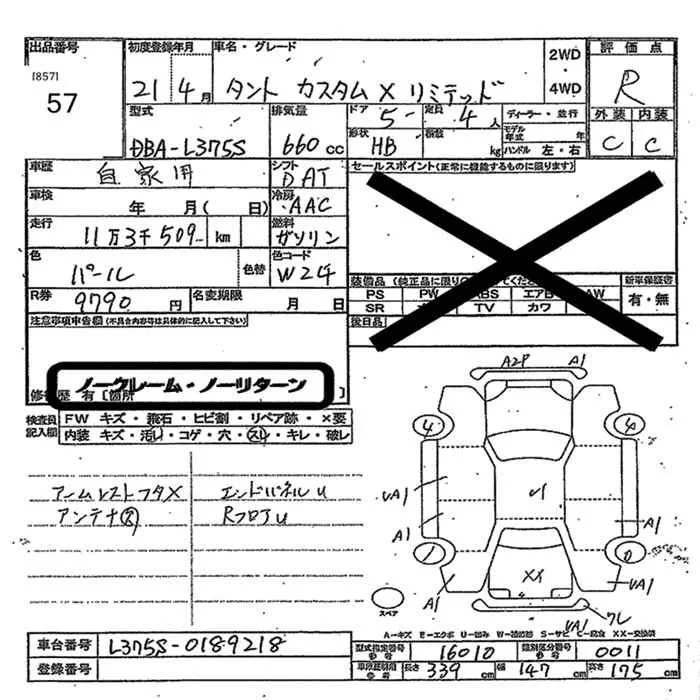 出品番号 初度登録年月 車名・グレード 2WD・4WD 評価点
[857]
57 21年4月 タント カスタム X リミテッド R
型式 排気量 ドア 5 定員 4人 ディーラー・並行 外装 内装
DBA-L375S 660cc 形状 HB 積数 kg モデル年式 年 ハンドル 左・右 C C
車歴 自家用 シフト DAT セールスポイント(正常に機能するものに限ります)
車検 年 月( 日) 冷房 AAC
走行 11万3千509 km 燃料 ガソリン
色 パール 色替 色コード W24
装備品(純正品に限り
てくださ
新車保証書
PS PW ABS エアB AW 有・無
SR TV カワ
R券 9790円 名変期限 月 日
後日品
注意事項申告欄(不具合内容等は具体的に記入して下さい)
ノークレーム・ノーリターン
修復歴 有〔箇所 〕
検査員記入欄 FW キズ・飛石・ヒビ割・リペア跡・×要
内装 キズ・汚レ・コゲ・穴・スレ・キレ・破レ
アームレストフタX エンドパネルU
アンテナ欠 RフロアU
A2P A1
4 4
UA1 U1
A1 A1
XX
A1 UA1
ワレ
UA1
スペア
A-キズ E-エクボ U-凹み W-補修跡 S-サビ C-腐食 XX-交換済
車台番号 L375S-0189218 型式指定番号 参考 16010 類別区分番号 参考 0011
登録番号 車検証明用 参考 長さ 339cm 幅 147cm 高さ 175cm